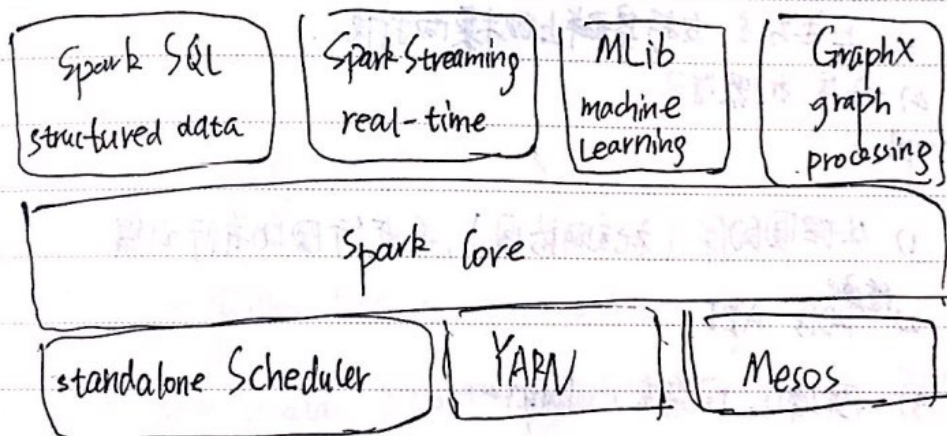 Spark SQL
structured data
Spark Streaming
real-time
MLib
machine
Learning
GraphX
graph
processing
spark Core
standalone Scheduler
YARN
Mesos